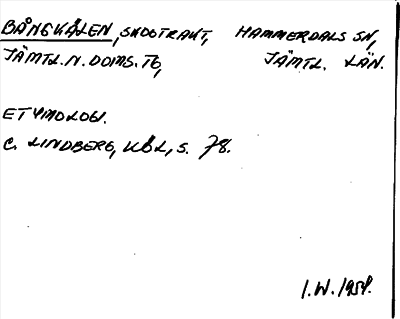 BÅNGKÄLEN, SKOGTRAKT, HAMMERDALS SN,
JÄMTL. N. DOMS. TG, JÄMTL. LÄN.
ETYMOLOGI.
C. LINDBERG, KÖL, S. 78.
I.W. 1954.